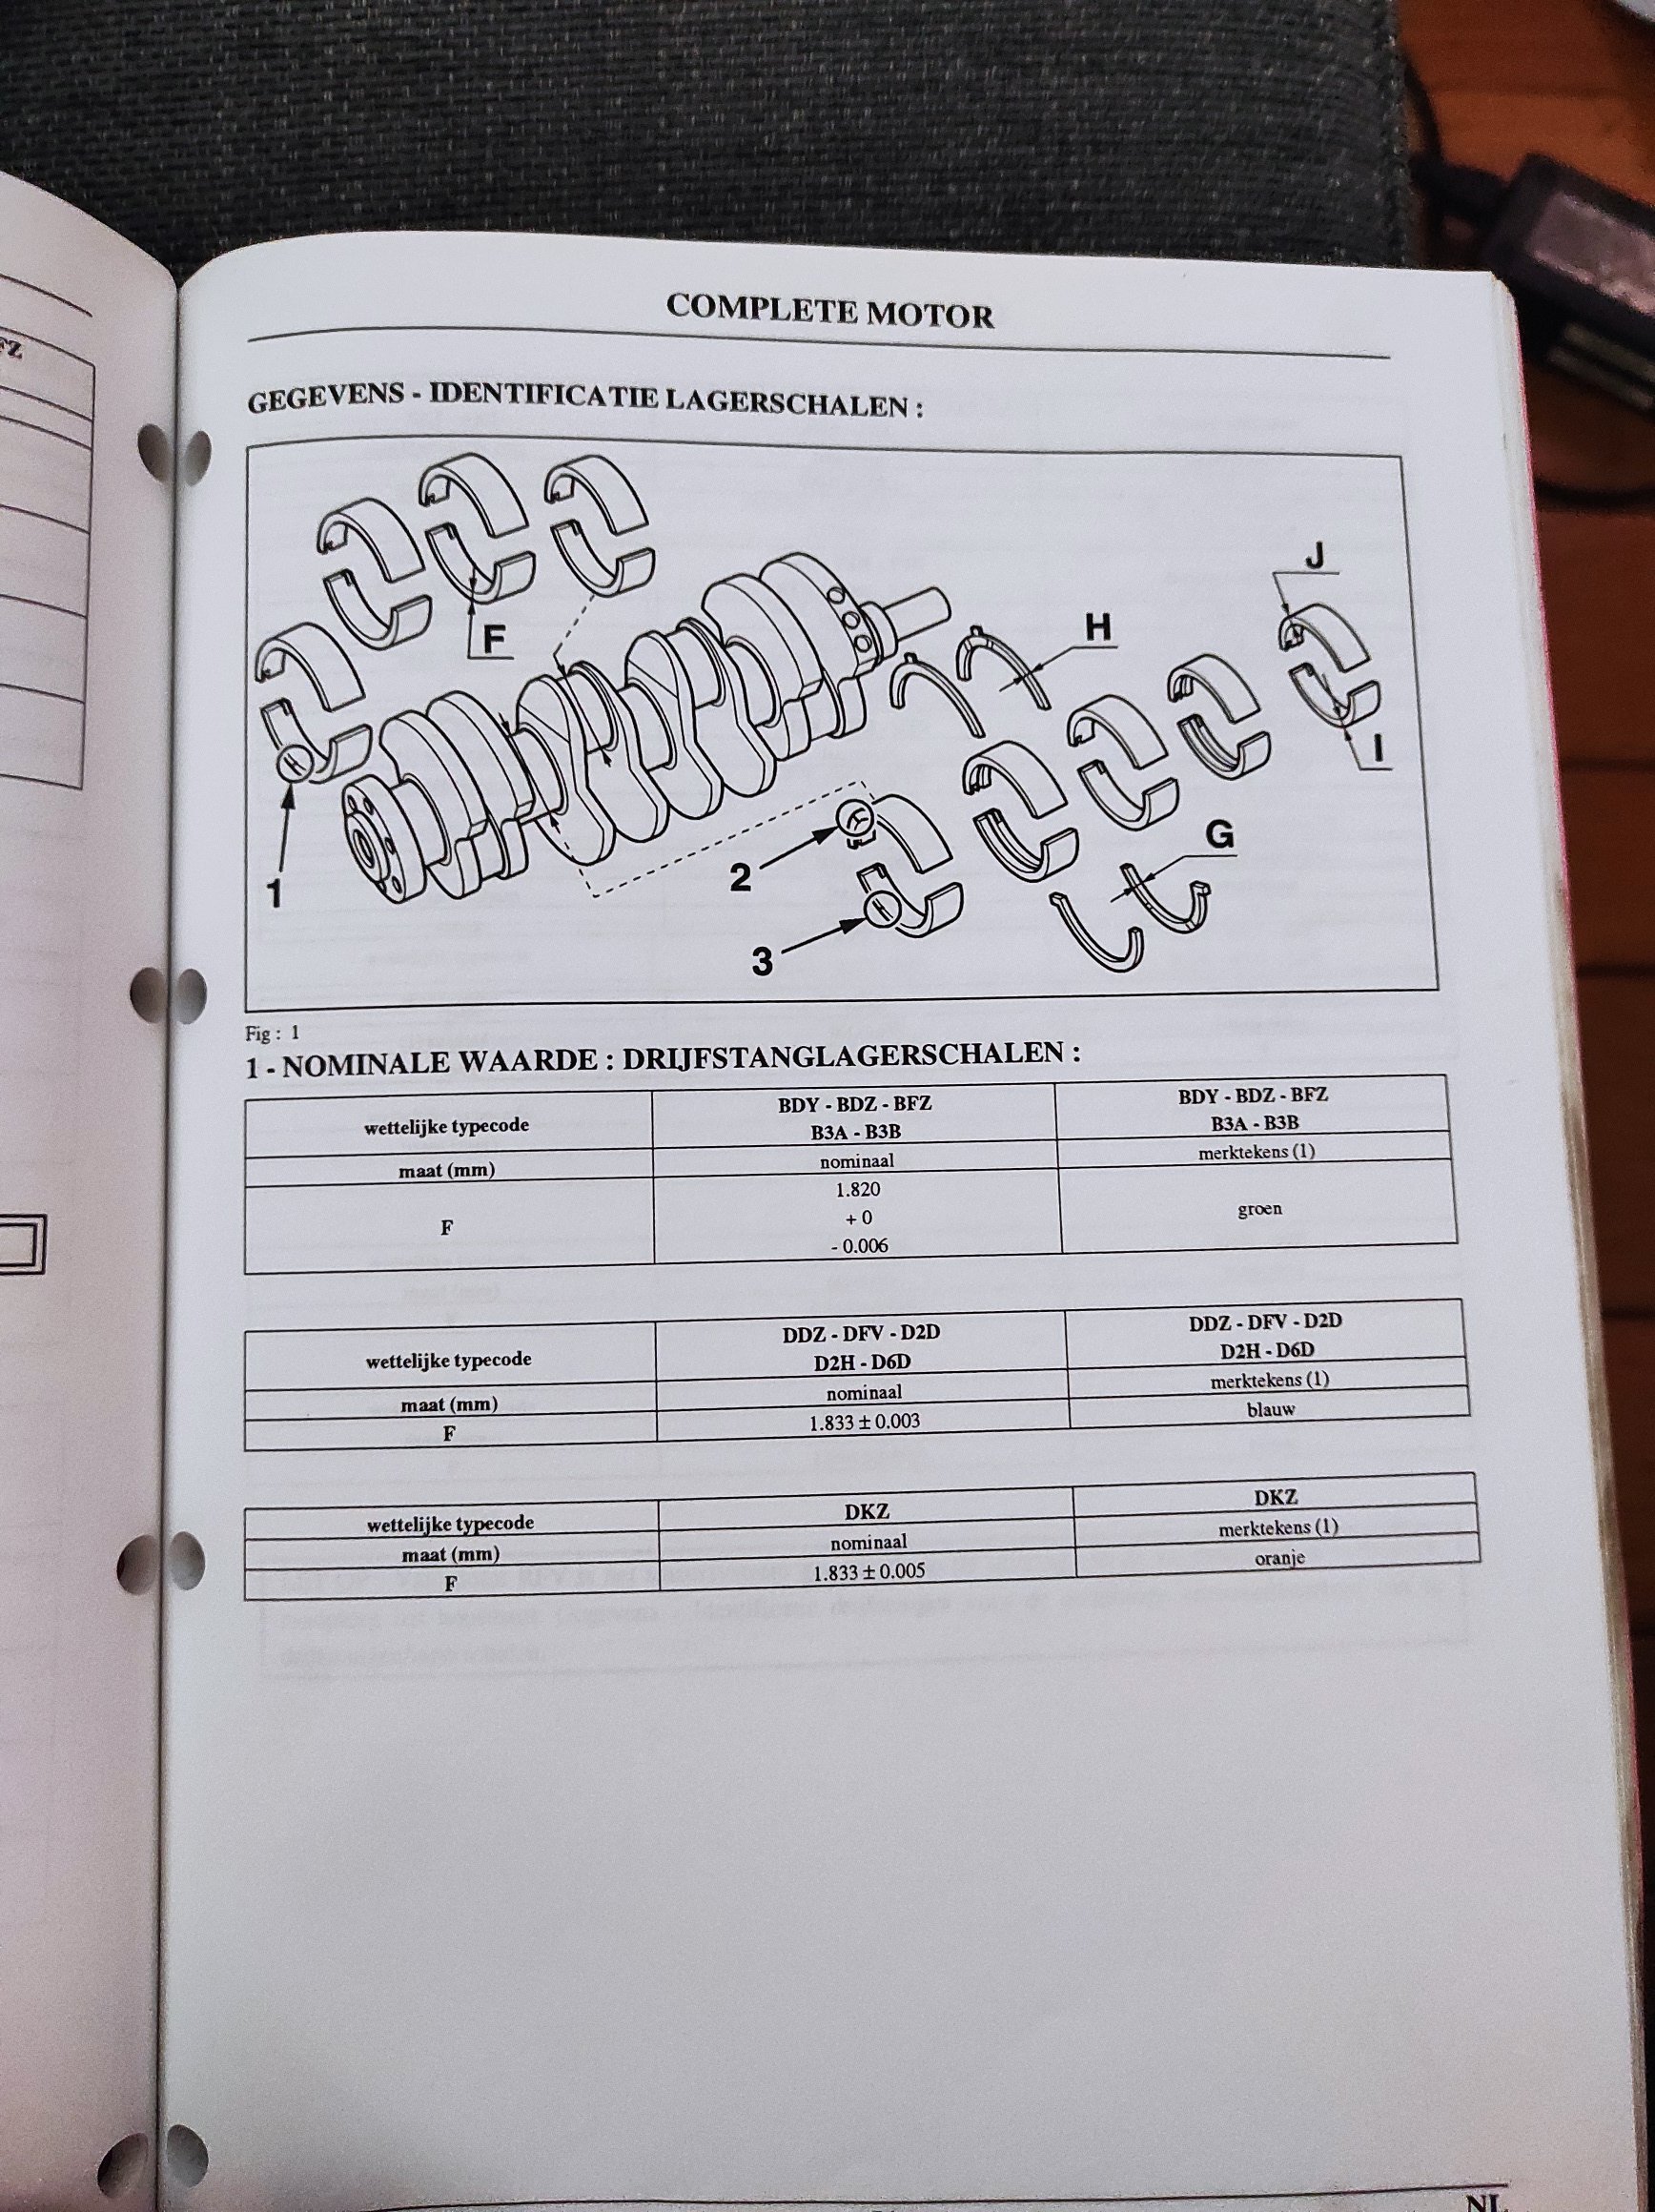 FZ
COMPLETE MOTOR
GEGEVENS - IDENTIFICATIE LAGERSCHALEN :
J
F
H
I
G
1
2
3
Fig : 1
1 - NOMINALE WAARDE : DRIJFSTANGLAGERSCHALEN :
wettelijke typecode
BDY - BDZ - BFZ
B3A - B3B
BDY - BDZ - BFZ
B3A - B3B
maat (mm)
nominaal
merktekens (1)
F
1.820
+ 0
- 0.006
groen
wettelijke typecode
DDZ - DFV - D2D
D2H - D6D
DDZ - DFV - D2D
D2H - D6D
maat (mm)
nominaal
merktekens (1)
F
1.833 ± 0.003
blauw
wettelijke typecode
DKZ
DKZ
maat (mm)
nominaal
merktekens (1)
F
1.833 ± 0.005
oranje
NL